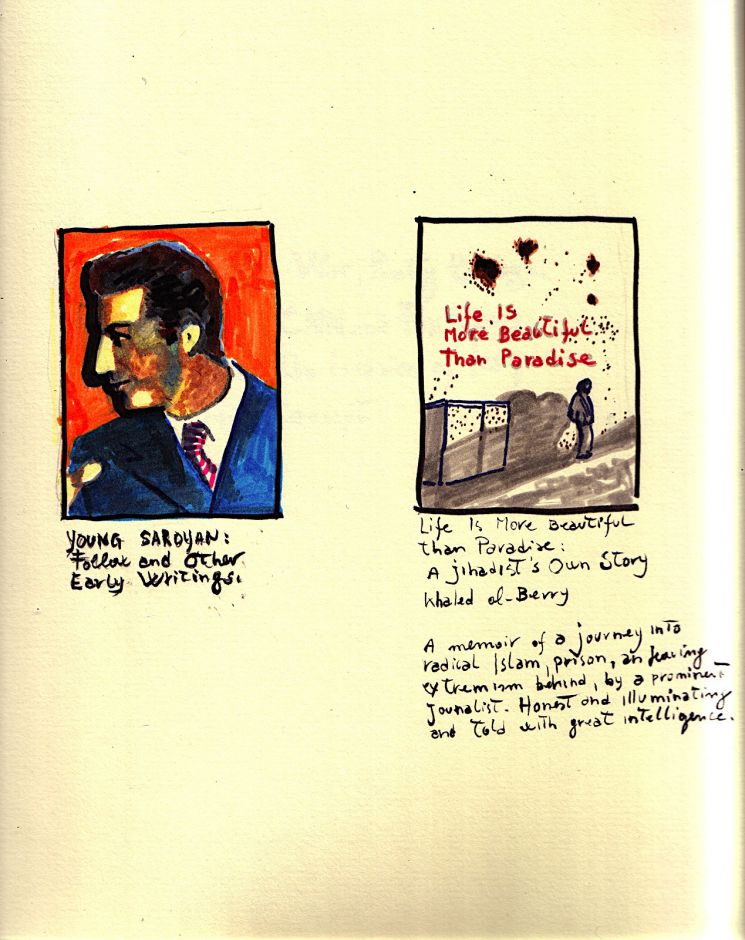 YOUNG SAROYAN:
Follow and Other
Early Writings.
Life Is
More Beautiful
Than Paradise
Life Is More Beautiful
than Paradise:
A jihadist's Own Story
Khaled al-Berry
A memoir of a journey into
radical Islam, prison, an leaving
extremism behind, by a prominent
journalist. Honest and illuminating
and told with great intelligence.